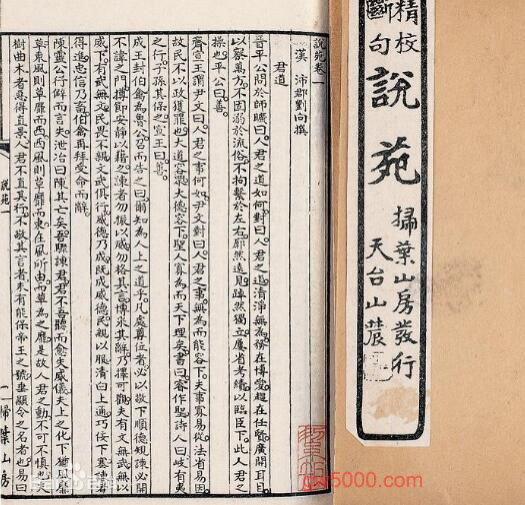 精校
斷句
說苑
掃葉山房發行
天台山農
說苑卷一
漢 沛郡劉向撰
君道
晉平公問於師曠曰。人君之道如何。對曰。人君之道清淨無為。務在博愛。趨在任賢。廣開耳目。
以察萬方。不固溺於流俗。不拘繫於左右。廓然遠見。踔然獨立。屢省考績。以臨臣下。此人君之
操也。平公曰善。
齊宣王謂尹文曰。人君之事何如。尹文對曰。人君之事。無為而能容下。夫事寡易從。法省易因。
故民不以政獲罪也。大道容眾。大德容下。聖人寡為而天下理矣。書曰。睿作聖。詩人曰。岐有夷
之行。子孫其保之。宣王曰善。
成王封伯禽為魯公。召而告之曰。爾知為人上之道乎。凡處尊位者。必以敬下。順德規諫。必開
不諱之門。撙節安靜以藉之。諫者勿振以威。勿格其言。博采其辭。乃擇可觀。夫有文無武。無以
威下。有武無文。民畏不親。文武俱行。威德乃成。既成威德。民親以服。清白上通。巧佞下塞。諫者
得進。忠信乃畜。伯禽再拜受命而辭。
陳靈公行僻而言失。泄冶曰。陳其亡矣。吾驟諫君。君不吾聽。而愈失威儀。夫上之化下。猶風靡
草。東風則草靡而西。西風則草靡而東。在風所由。而草為之靡。是故人君之動。不可不慎也。夫
樹曲木者。惡得直景。人君不直其行。不敬其言者。未有能保帝王之號。垂顯令之名者也。易曰
說苑一
一
掃葉山房
5000.com